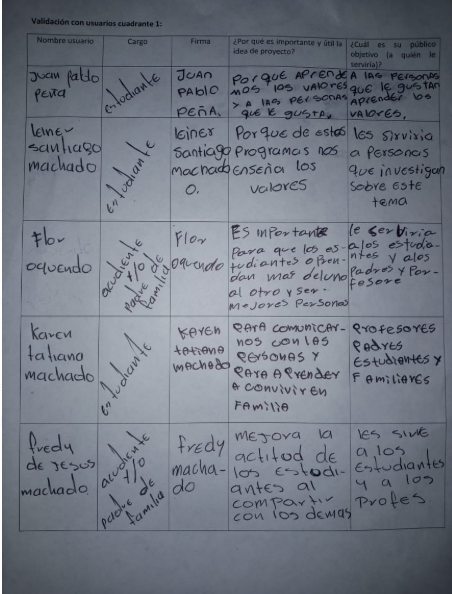 Validación con usuarios cuadrante 1:
Nombre usuario
Cargo
Firma
¿Por qué es importante y útil la
idea de proyecto?
¿Cuál es su público
objetivo (a quién le
serviría)?
Juan pablo
peña
estudiante
JUAN
PABLO
PEÑA.
Porque APRENDE
MOS LOS VALORES
Y A LAS PERSONAS
QUE LE GUSTA.
A LAS PERSONAS
QUE LE GUSTAN
APRENDER LOS
VALORES.
leiner
santiago
machado
estudiante
leiner
Santiago
machad
o.
Porque de estos
programas nos
enseña los
valores
les sirviria
a personas
que investigan
sobre este
tema
Flor
oquendo
acudiente
y/o
padre de
familia
Flor
oquendo
ES importante
para que los es-
tudiantes apren-
dan mas del uno
al otro y ser
mejores personas
le serviria
a los estudia-
ntes y a los
padres y por-
fesore
Karen
tatiana
machado
estudiante
KAREN
tatiana
machado
PARA comunicar-
nos con las
PERSONAS Y
PARA APRENDER
A CONVIVIR EN
FAMILIA
PROFESORES
PADRES
ESTUDIANTES Y
FAMILIARES
fredy
de Jesus
machado
acudiente
y/o
padre de
familia
fredy
macha-
do
mejora la
actitud de
los estudi-
antes al
compartir
con los demas
les sirve
a los
Estudiantes
y a los
profes